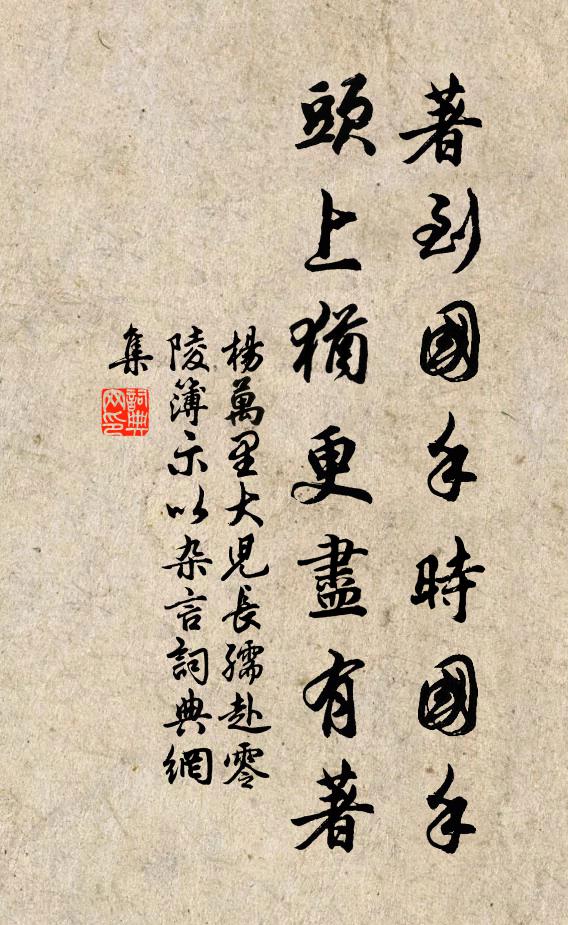 著到國手時國手
頭上猶更盡有著
楊萬里大兒長孺赴零
陵簿示以杂言詞典網
集
詞典
网印